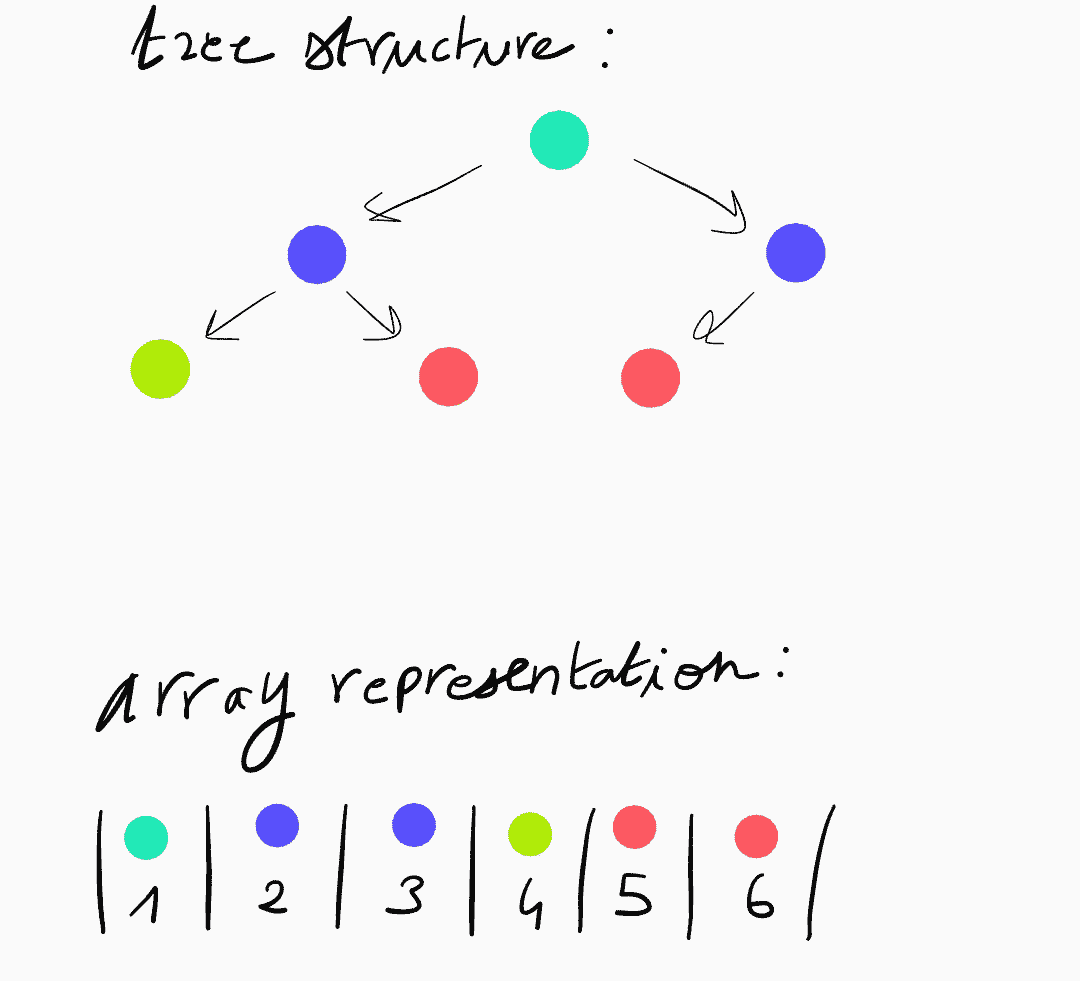 tree structure :
array representation :
| 1 | 2 | 3 | 4 | 5 | 6 |